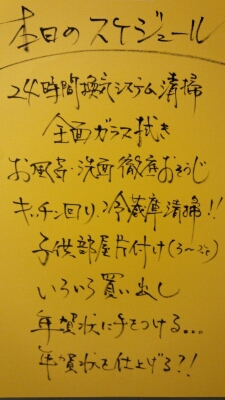 本日のスケジュール
24時間換気システム清掃
全面ガラス拭き
お風呂・洗面 徹底おそうじ
キッチン回り、冷蔵庫清掃!!
子供部屋片付け
いろいろ買い出し
年賀状に手をつける...
年賀状を仕上げる?!